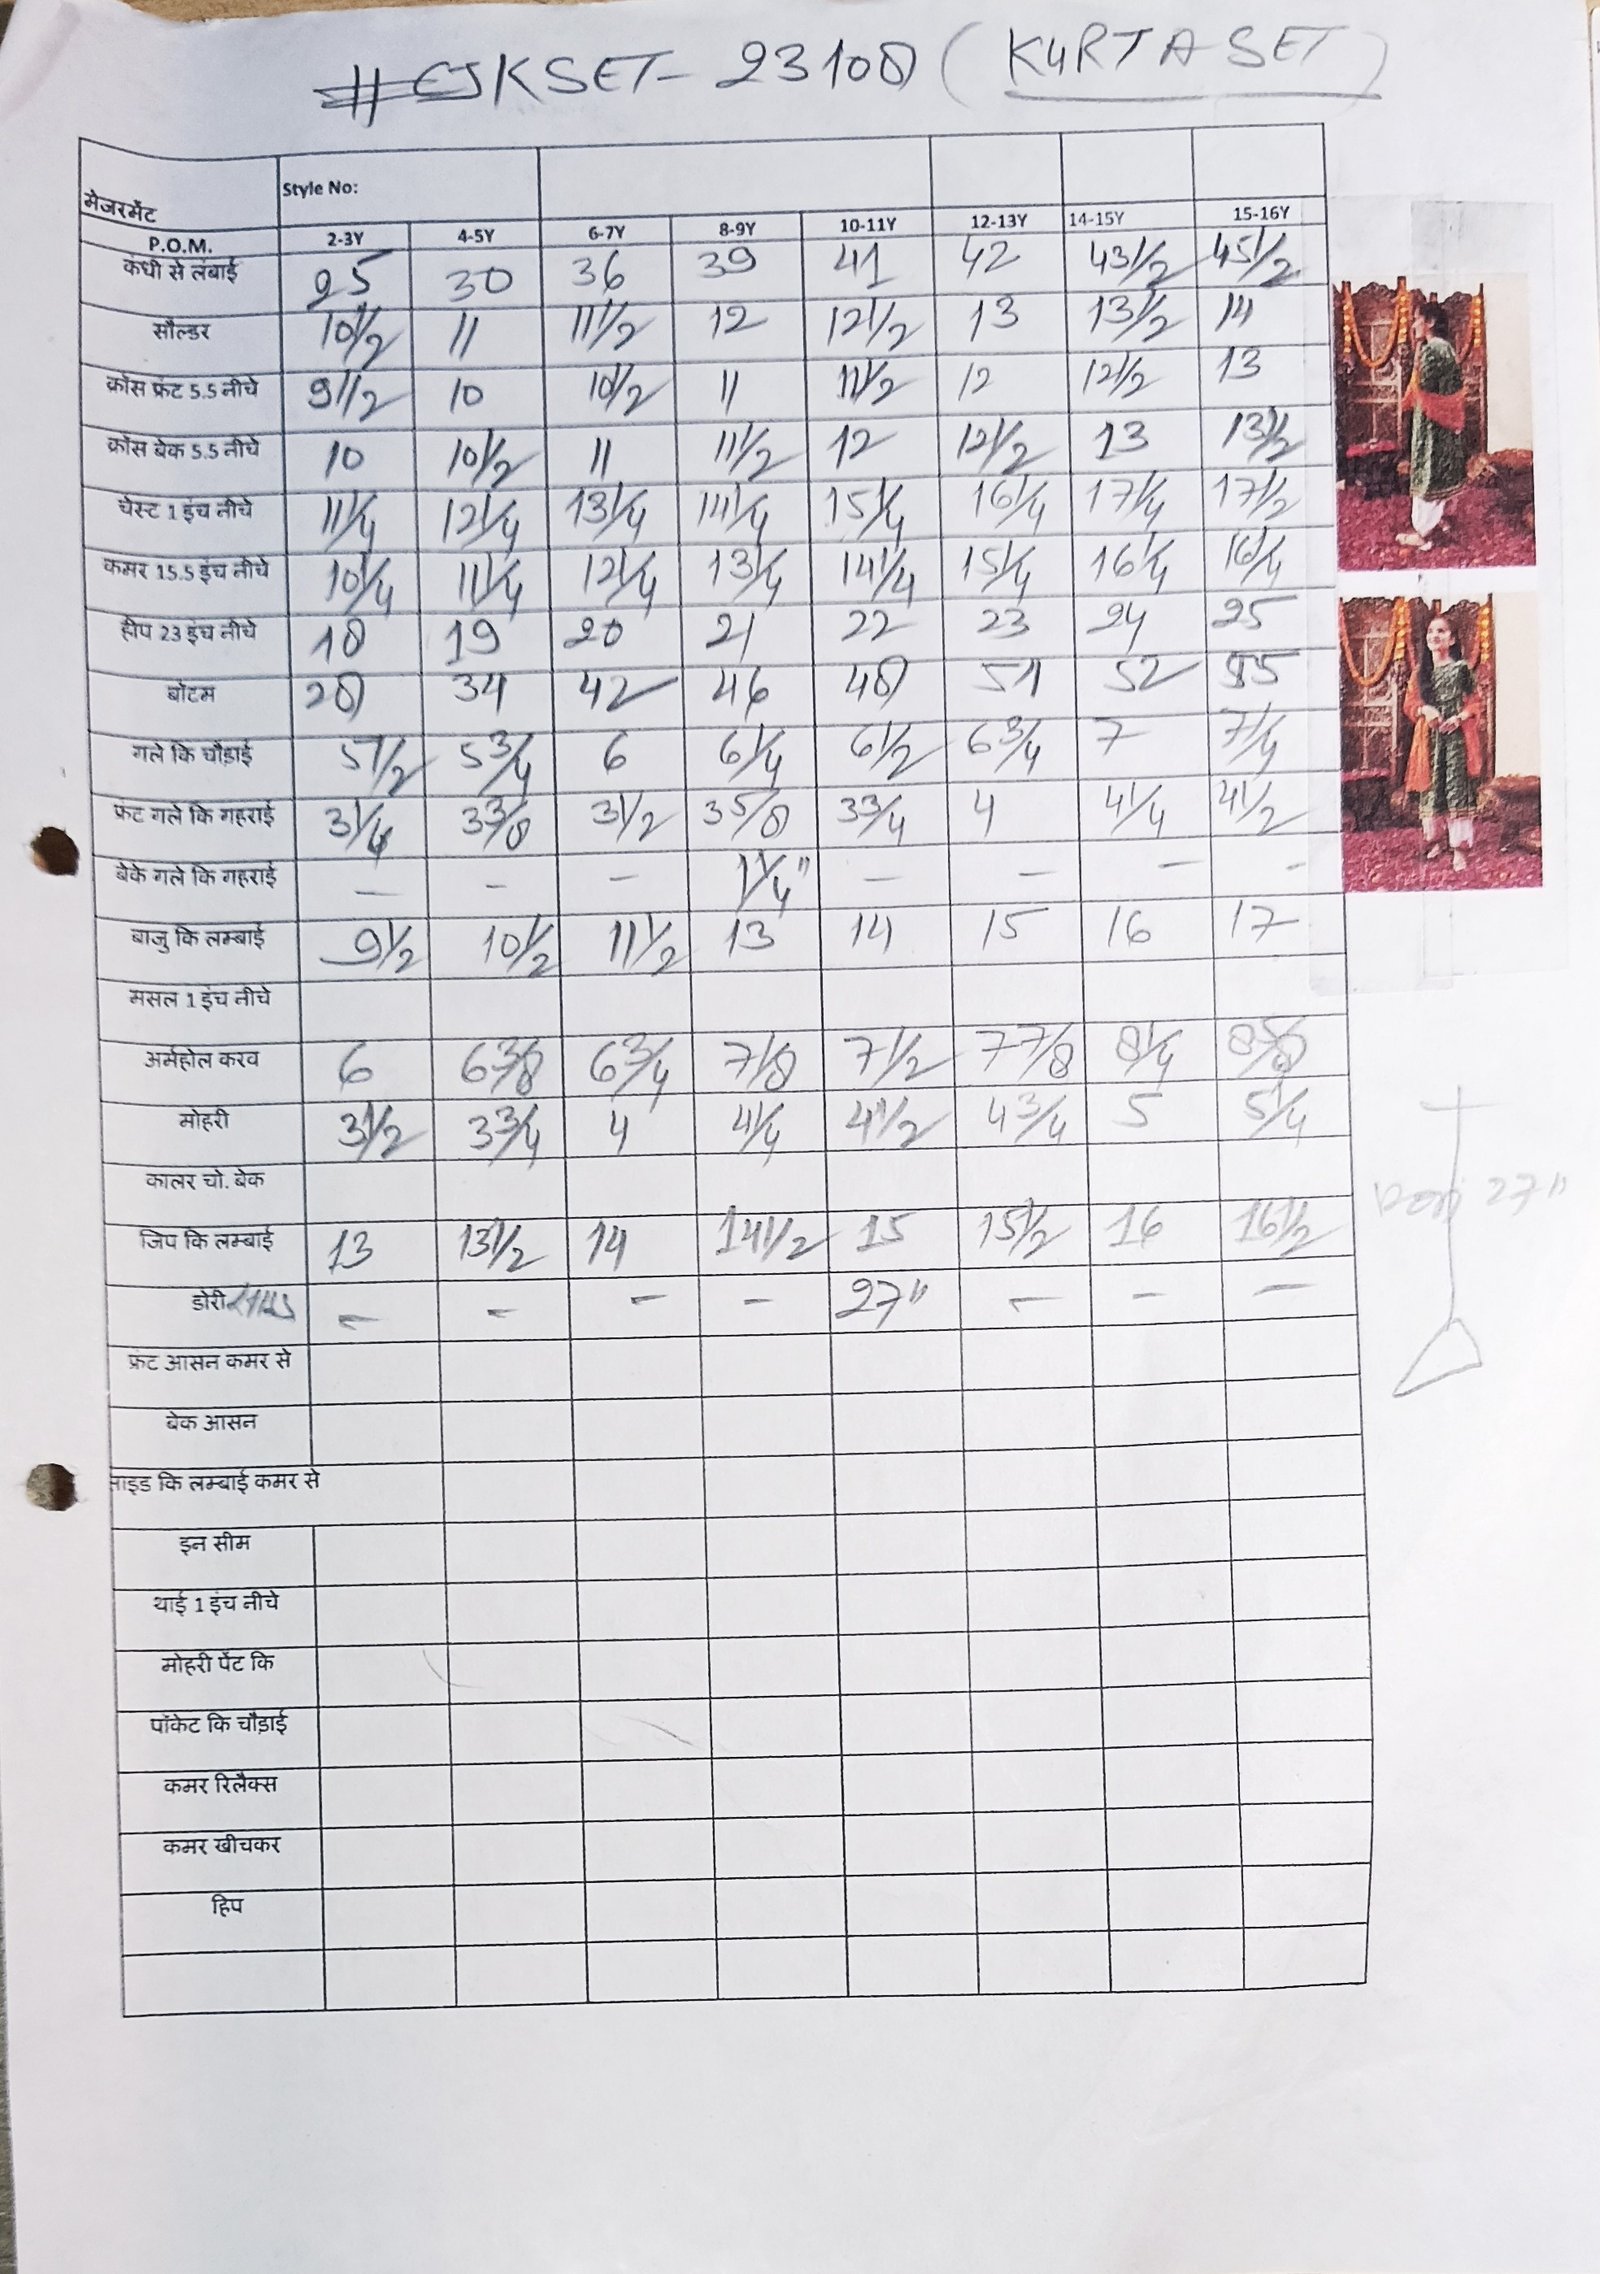 #CJKSET-23108 (KURTA SET)
मेजरमेंट Style No:
P.O.M. 2-3Y 4-5Y 6-7Y 8-9Y 10-11Y 12-13Y 14-15Y 15-16Y
कंधी से लंबाई 25 30 36 39 41 42 43 1/2 45 1/2
सौल्डर 10 1/2 11 11 1/2 12 12 1/2 13 13 1/2 14
क्रॉस फ्रंट 5.5 नीचे 9 1/2 10 10 1/2 11 11 1/2 12 12 1/2 13
क्रॉस बेक 5.5 नीचे 10 10 1/2 11 11 1/2 12 12 1/2 13 13 1/2
चेस्ट 1 इंच नीचे 11 1/4 12 1/4 13 1/4 14 1/4 15 1/4 16 1/4 17 1/4 17 1/2
कमर 15.5 इंच नीचे 10 1/4 11 1/4 12 1/4 13 1/4 14 1/4 15 1/4 16 1/4 16 1/4
हीप 23 इंच नीचे 18 19 20 21 22 23 24 25
बॉटम 28 34 42 46 48 51 52 55
गले कि चौड़ाई 5 1/2 5 3/4 6 6 1/4 6 1/2 6 3/4 7 7 1/4
फ्रंट गले कि गहराई 3 1/4 3 3/8 3 1/2 3 5/8 3 3/4 4 4 1/4 4 1/2
बेके गले कि गहराई – – – 1 1/4" – – – -
बाजु कि लम्बाई 9 1/2 10 1/2 11 1/2 13 14 15 16 17
मसल 1 इंच नीचे
अर्महोल करव 6 6 3/8 6 3/4 7 1/8 7 1/2 7 7/8 8 1/4 8 5/8
मोहरी 3 1/2 3 3/4 4 4 1/4 4 1/2 4 3/4 5 5 1/4
कालर चो. बेक
जिप कि लम्बाई 13 13 1/2 14 14 1/2 15 15 1/2 16 16 1/2
Dori 27"
डोरी – – – – 27" – – –
फ्रंट आसन कमर से
बेक आसन
साइड कि लम्बाई कमर से
इन सीम
थाई 1 इंच नीचे
मोहरी पेंट कि
पॉकेट कि चौड़ाई
कमर रिलैक्स
कमर खीचकर
हिप